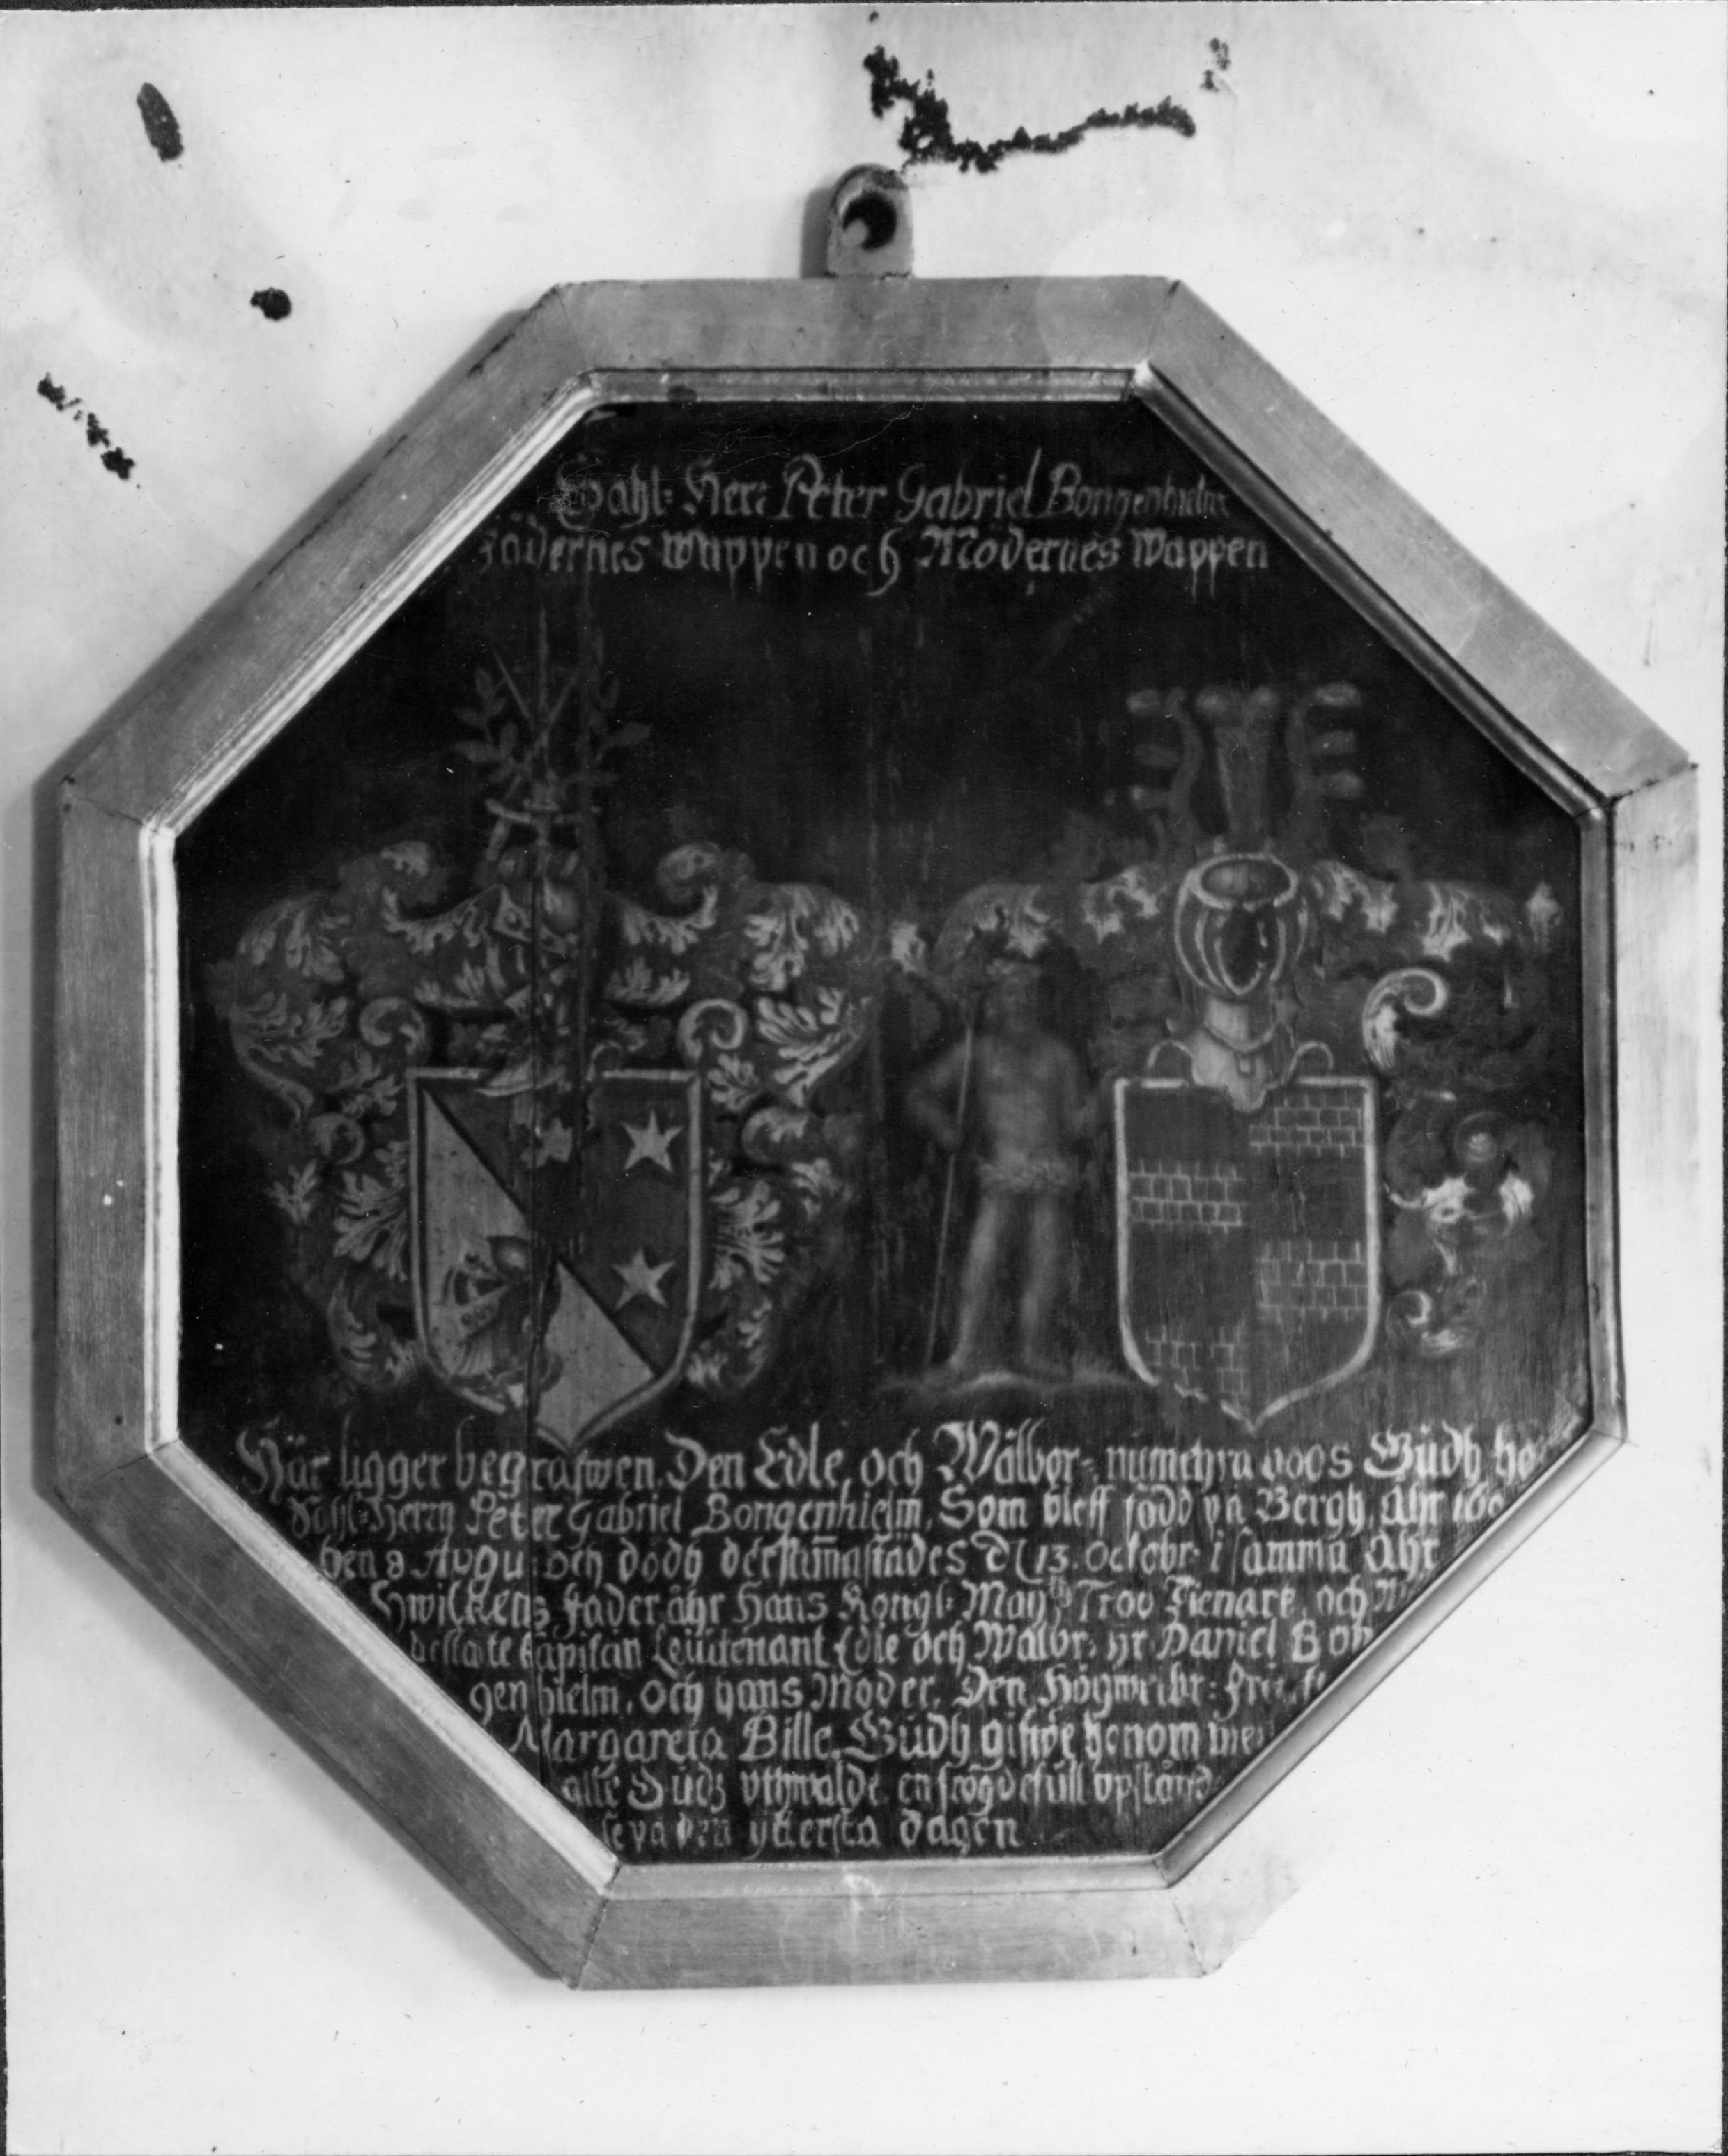 Sahl: Herr Peter Gabriel Bongenhielm
Fädernes Wappen och Mödernes Wappen
Här ligger begrafwen, Den Edle, och Wälbor=, numehra hoos Gudh
Sahl: Herrn Peter Gabriel Bongenhielm, Som bleff född på Bergh, Ahr
den 8 Augu: och dödh dersammastädes d 13. Octobr: i samma Ahr
Hwilkens Fader ähr Hans Kongl: May:tz Troo Tienare, och
bestälte Kapitan Leutenant Edle och Wälbr: Hr Daniel Bon
genhielm, och hans Moder, Den Högwelbr:
Margareta Bille, Gudh gifwe honom
alle Gudz uthwalde en frögdefull upstånd
se på den ytterska dagen